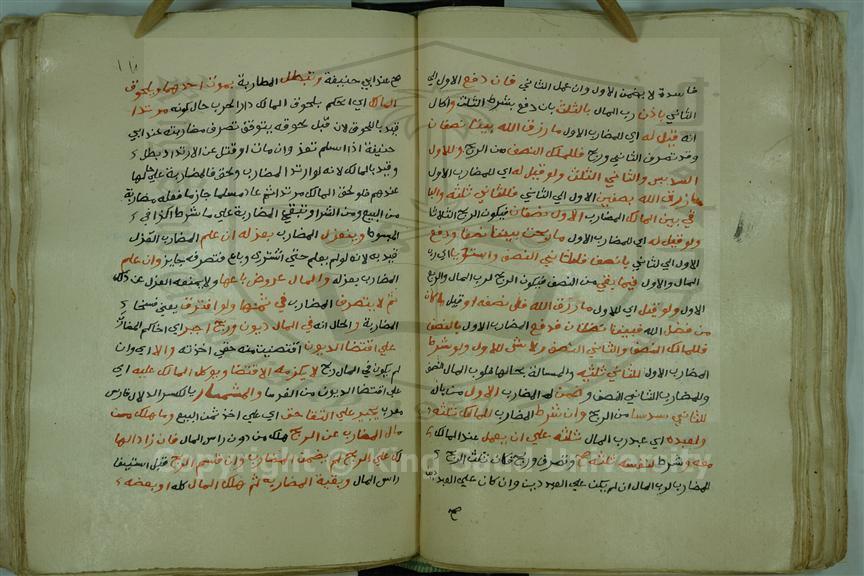 فاسدة لا يضمن الاول وان عمل الثاني فان دفع الاول الي
الثاني باذن رب المال بالثلث بان دفع بشرط الثلث والحال
انه قيل له اي للمضارب الاول ما رزق الله بيننا نصفان
وقد تصرف الثاني وربح فللمالك النصف من الربح وللاول
السدس والثاني الثلث ولو قيل له اي للمضارب الاول
ما رزق الله بنصفين الاول الي الثاني فللثاني ثلثه والبا
في بين المالك المضارب الاول نصفان فيكون الربح اثلاثا
ولو قيل له اي للمضارب الاول ما ربحت بيننا نصفا ودفع
الاول الي لثاني بالنصف فللثاني النصف واستويا اي رب
المال والاول فيما بقي من النصف فيكون الربح لرب المال والربع
الاول ولو قيل اي للاول ما رزق الله فلي نصفه او قيل ما كان
من فضل الله فبيننا نصفان فدفع المضارب الاول بالنصف
فللمالك النصف والثاني النصف ولا شئ للاول ولو شرط
المضارب الاول للثاني ثلثيه والمسالة بحالها فلرب المال النصف
وللمضارب الثاني النصف وضمن له المضارب الاول من ماله
للثاني سدسا من الربح وان شرط المضارب للمالك ثلثه
ولعبده اي عبد رب المال ثلثه علي ان يعمل عند المالك
معه وشرط لنفسه ثلثه صح وتصرف وربح فكان ثلث الربح
للمضارب لرب المال ان لم يكن علي العبد دين وان كان علي العبد
صح
صح عند ابي حنيفة وتبطل المضاربة بموت احدهما وبلحوق
المالك اي الحكم بلحوق المالك دار الحرب حال كونه مرتدا
قيد باللحوق لان قبل لحوقه يتوقف تصرف مضاربته عند ابي
حنيفة اذا اسلم نفذ وان مات او قتل عن الارتداد بطل
وقيد بالمالك لانه لو ارتد المضارب ولحق فالمضاربة علي حالها
عندهم فلو لحق المالك مرتدا ثم عاد مسلما جاز ما فعله مضاربة
من البيع ومن الشرا وتبقي المضاربة علي ما شرط كذا في
المبسوط وينعزل المضارب بعزله ان علم المضارب العزل
قيد به لانه لو لم يعلم حتي اشتري وباع فتصرفه جايز وان علم
المضارب بعزله والمال عروض باعها ولا يمنعه العزل عن ذلك
ثم لا يتصرف المضارب في ثمنها ولو افترقا يعني فسخا
المضاربة والحال انه في المال ديون وربح اجبر اي الحاكم المضارب
علي اقتضا الديون اقتضيت منه حقي اخذته والا اي وان
لم يكون في المال ربح لا يلزمه الاقتضا ويوكل المالك عليه اي
علي اقتضا الديون من الغرما والسمسار بالكسر الدلال فارسي
معرب يجبر علي التقاضي اي علي اخذ ثمن البيع وما هلك من
مال المضارب عن الربح هلك من دون راس المال فان زاد الها
لك علي الربح لم يضمن المضارب وان قسم الربح قبل استيفا
راس المال وبقية المضاربة ثم هلك المال كله او بعضه
Copyright © King Saud University